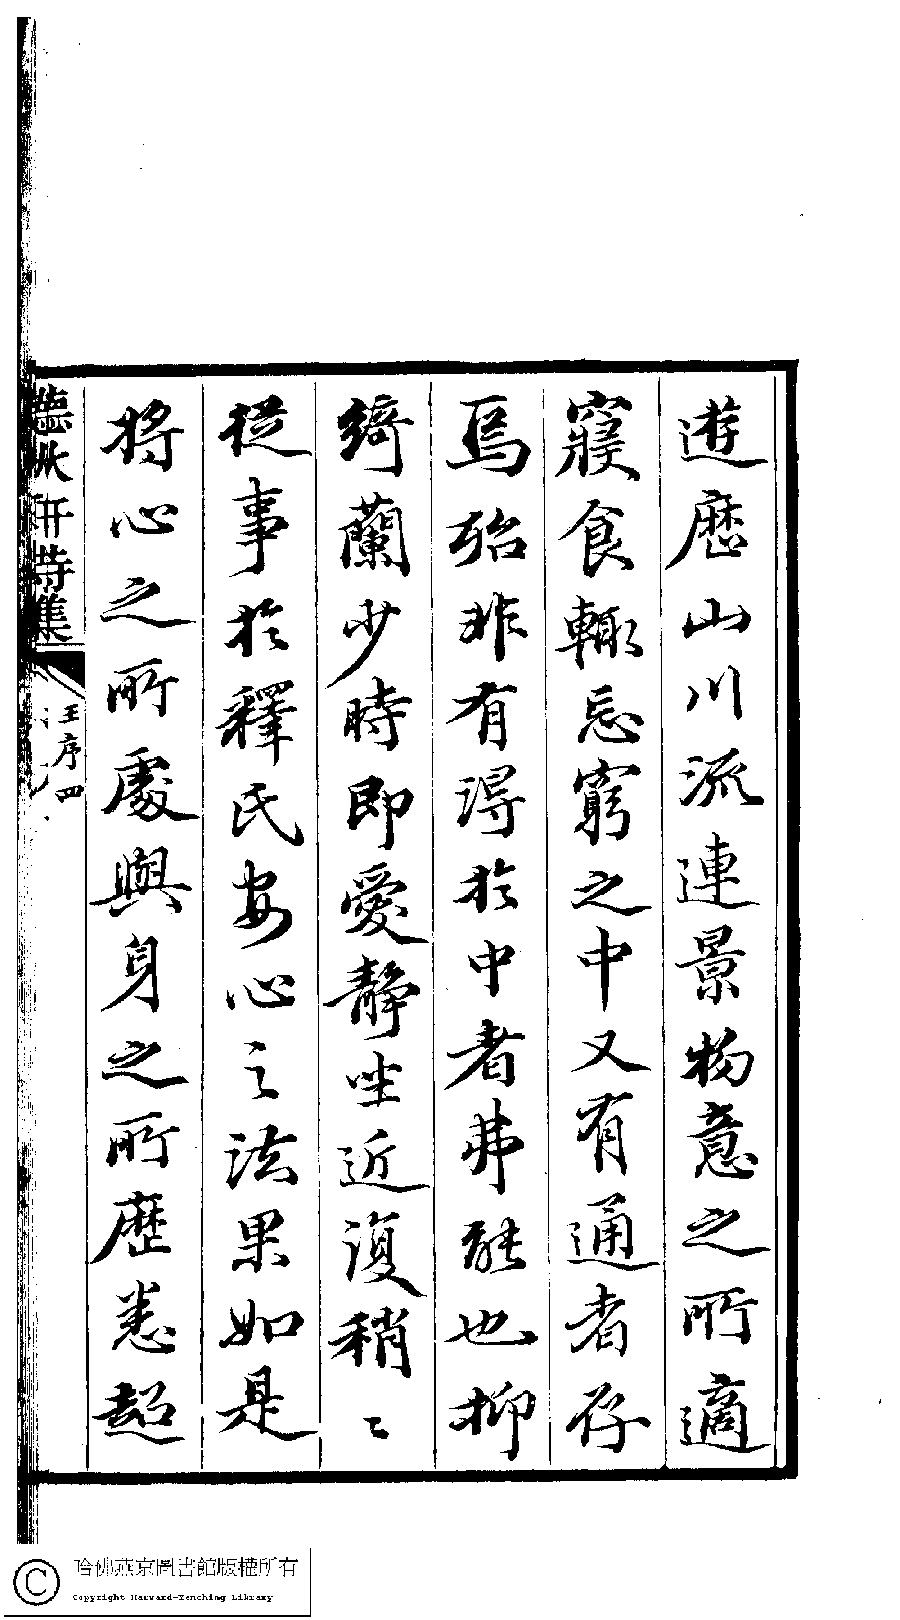 遊歷山川流連景物意之所適
寢食輙忘窮之中又有通者存
焉殆非有得於中者弗能也抑
綺蘭少時即愛靜坐近復稍〻
從事於釋氏安心之法果如是
將心之所處與身之所歷悉超
聽秋軒詩集
汪序 四
哈佛燕京圖書館版權所有
Copyright Harvard-Yenching Library